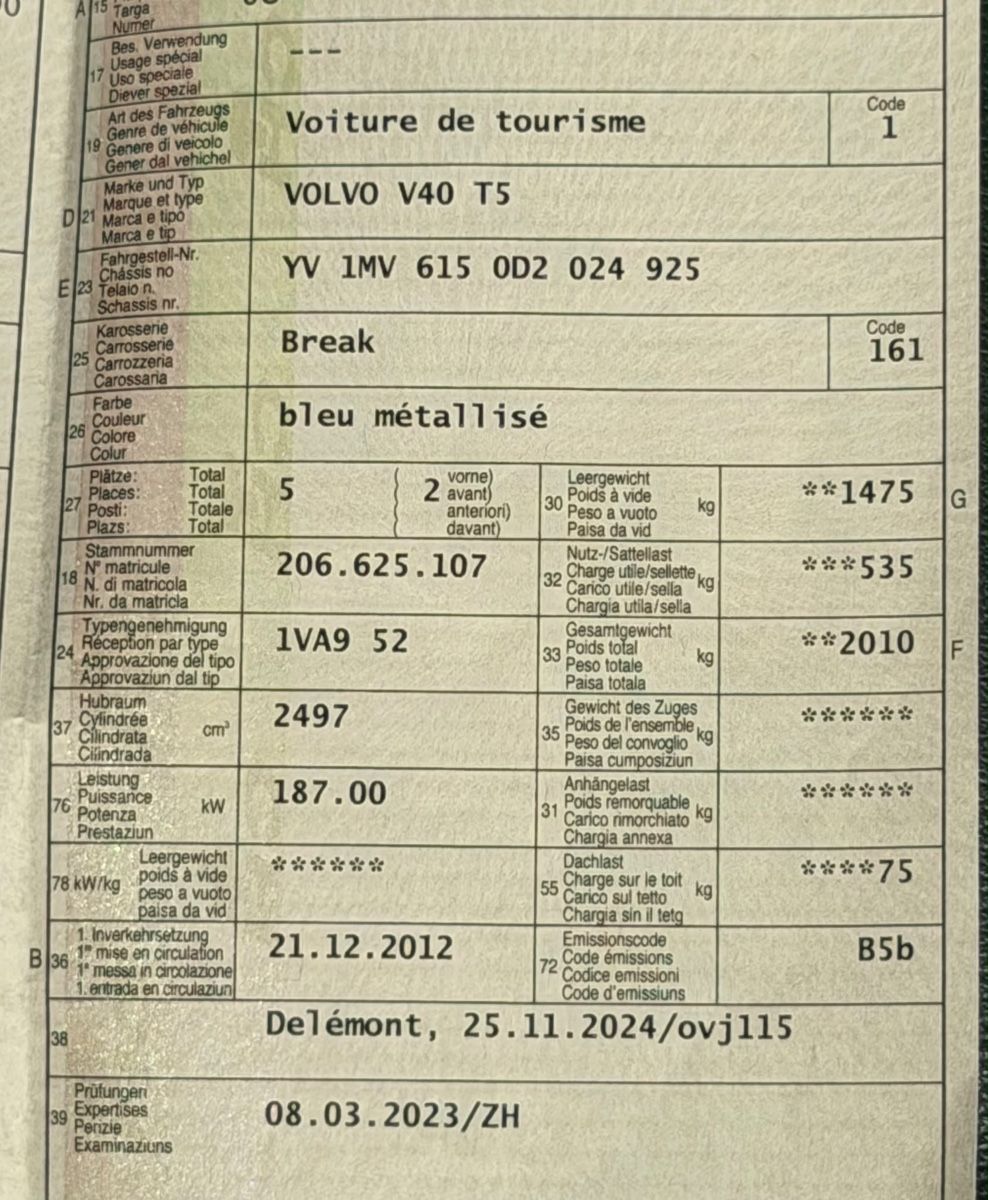 A 15 Targa
Numer
17 Bes. Verwendung
Usage spécial
Uso speciale
Diever spezial
---
19 Art des Fahrzeugs
Genre de véhicule
Genere di veicolo
Gener dal vehichel
Voiture de tourisme
Code
1
D 21 Marke und Typ
Marque et type
Marca e tipo
Marca e tip
VOLVO V40 T5
E 23 Fahrgestell-Nr.
Châssis no
Telaio n.
Schassis nr.
YV 1MV 615 0D2 024 925
25 Karosserie
Carrosserie
Carrozzeria
Carossaria
Break
Code
161
26 Farbe
Couleur
Colore
Colur
bleu métallisé
27 Plätze: Total
Places: Total
Posti: Totale
Plazs: Total
5
( 2 vorne)
( avant)
( anteriori)
( davant)
30 Leergewicht
Poids à vide
Peso a vuoto
Paisa da vid
kg
**1475 G
18 Stammnummer
N° matricule
N. di matricola
Nr. da matricla
206.625.107
32 Nutz-/Sattellast
Charge utile/sellette
Carico utile/sella
Chargia utila/sella
kg
***535
24 Typengenehmigung
Réception par type
Approvazione del tipo
Approvaziun dal tip
1VA9 52
33 Gesamtgewicht
Poids total
Peso totale
Paisa totala
kg
**2010 F
37 Hubraum
Cylindrée
Cilindrata
Cilindrada
cm³
2497
35 Gewicht des Zuges
Poids de l'ensemble
Peso del convoglio
Paisa cumposiziun
kg
******
76 Leistung
Puissance
Potenza
Prestaziun
kW
187.00
31 Anhängelast
Poids remorquable
Carico rimorchiato
Chargia annexa
kg
******
78 kW/kg Leergewicht
poids à vide
peso a vuoto
paisa da vid
******
55 Dachlast
Charge sur le toit
Carico sul tetto
Chargia sin il tetg
kg
****75
B 36 1. Inverkehrsetzung
1re mise en circulation
1a messa in circolazione
1. entrada en circulaziun
21.12.2012
72 Emissionscode
Code émissions
Codice emissioni
Code d'emissiuns
B5b
38
Delémont, 25.11.2024/ovj115
39 Prüfungen
Expertises
Perizie
Examinaziuns
08.03.2023/ZH